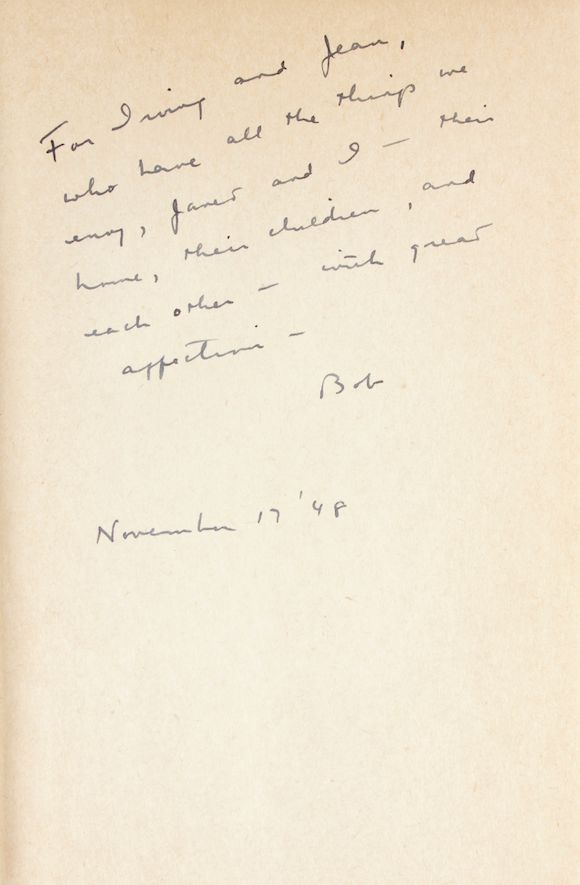 For Irving and Jean,
who have all the things we
envy, Janet and I — their
home, their children, and
each other — with great
affection —
Bob
November 17 '48